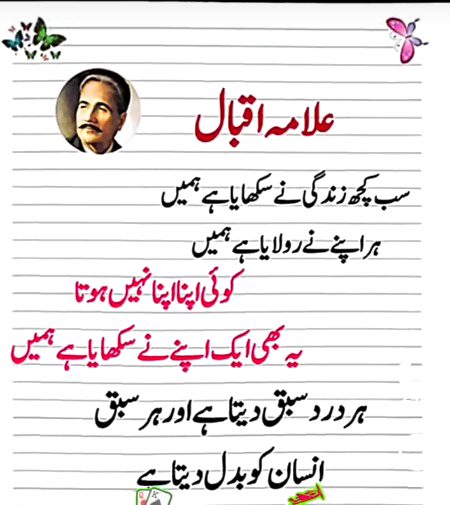 علامہ اقبال
سب کچھ زندگی نے سکھایا ہے ہمیں
ہر اپنے نے رولایا ہے ہمیں
کوئی اپنا اپنا نہیں ہوتا
یہ بھی ایک اپنے نے سکھایا ہے ہمیں
ہر درد سبق دیتا ہے اور ہر سبق
انسان کو بدل دیتا ہے